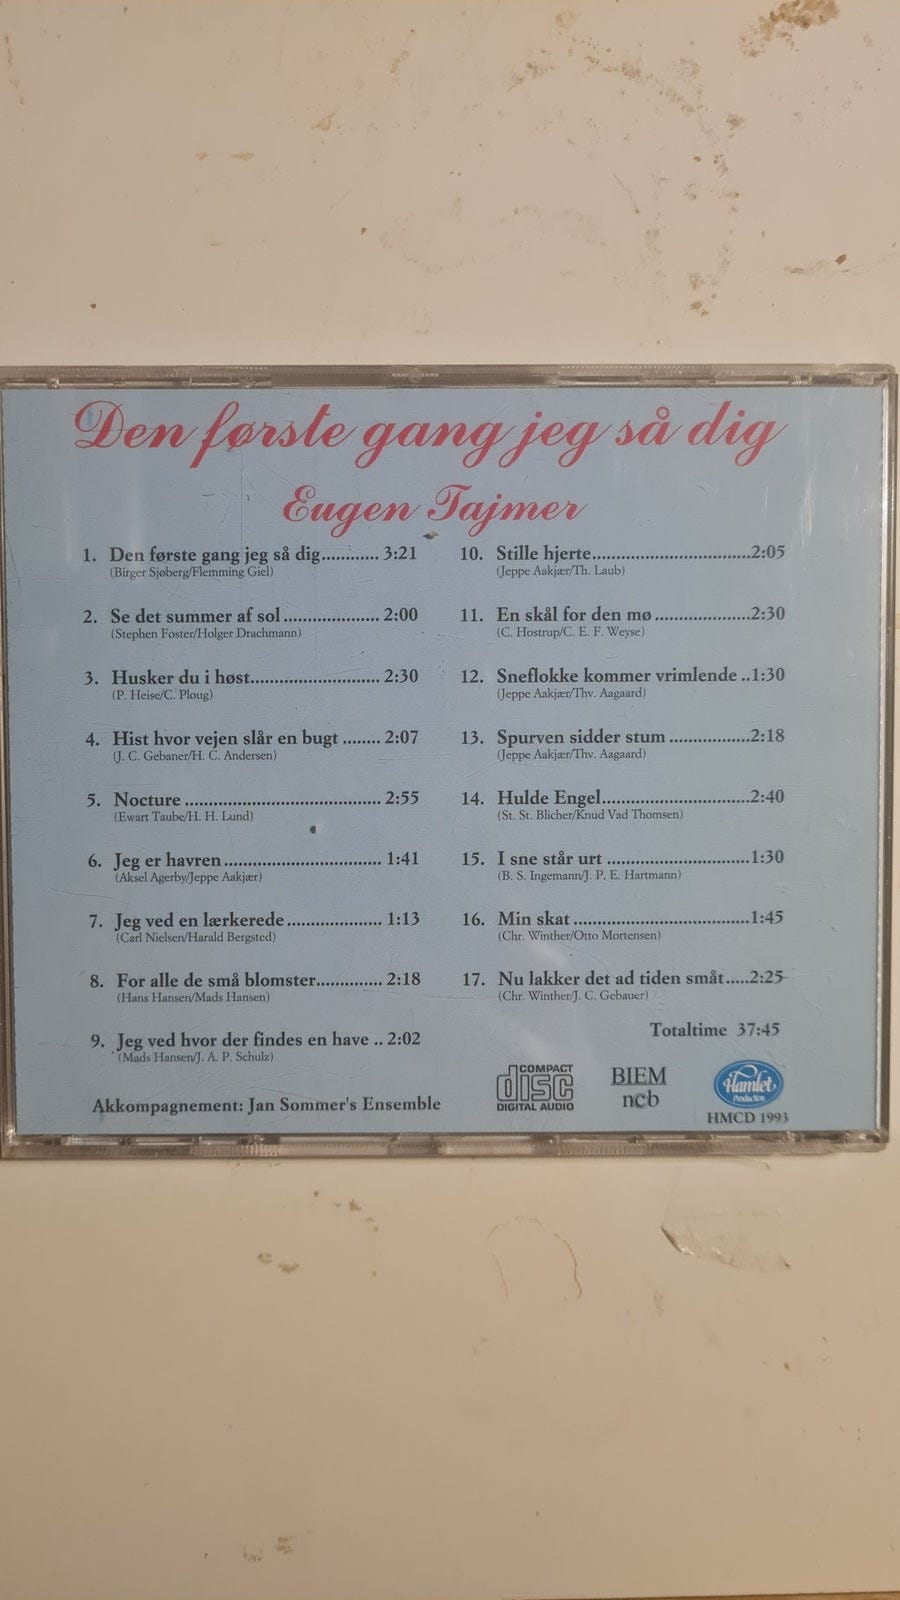 Den første gang jeg så dig
Eugen Tajmer
1. Den første gang jeg så dig........... 3:21
(Birger Sjøberg/Flemming Giel)
2. Se det summer af sol .................... 2:00
(Stephen Foster/Holger Drachmann)
3. Husker du i høst........................... 2:30
(P. Heise/C. Ploug)
4. Hist hvor vejen slår en bugt ........ 2:07
(J. C. Gebaner/H. C. Andersen)
5. Nocture ......................................... 2:55
(Ewart Taube/H. H. Lund)
6. Jeg er havren ................................. 1:41
(Aksel Agerby/Jeppe Aakjær)
7. Jeg ved en lærkerede .................... 1:13
(Carl Nielsen/Harald Bergsted)
8. For alle de små blomster.............. 2:18
(Hans Hansen/Mads Hansen)
9. Jeg ved hvor der findes en have .. 2:02
(Mads Hansen/J. A. P. Schulz)
Akkompagnement: Jan Sommer's Ensemble
10. Stille hjerte.................................2:05
(Jeppe Aakjær/Th. Laub)
11. En skål for den mø ....................2:30
(C. Hostrup/C. E. F. Weyse)
12. Sneflokke kommer vrimlende ..1:30
(Jeppe Aakjær/Thv. Aagaard)
13. Spurven sidder stum .................2:18
(Jeppe Aakjær/Thv. Aagaard)
14. Hulde Engel...............................2:40
(St. St. Blicher/Knud Vad Thomsen)
15. I sne står urt ..............................1:30
(B. S. Ingemann/J. P. E. Hartmann)
16. Min skat .....................................1:45
(Chr. Winther/Otto Mortensen)
17. Nu lakker det ad tiden småt.....2:25
(Chr. Winther/J. C. Gebauer)
Totaltime 37:45
COMPACT
disc
DIGITAL AUDIO
BIEM
ncb
Hamlet
Production
HMCD 1993